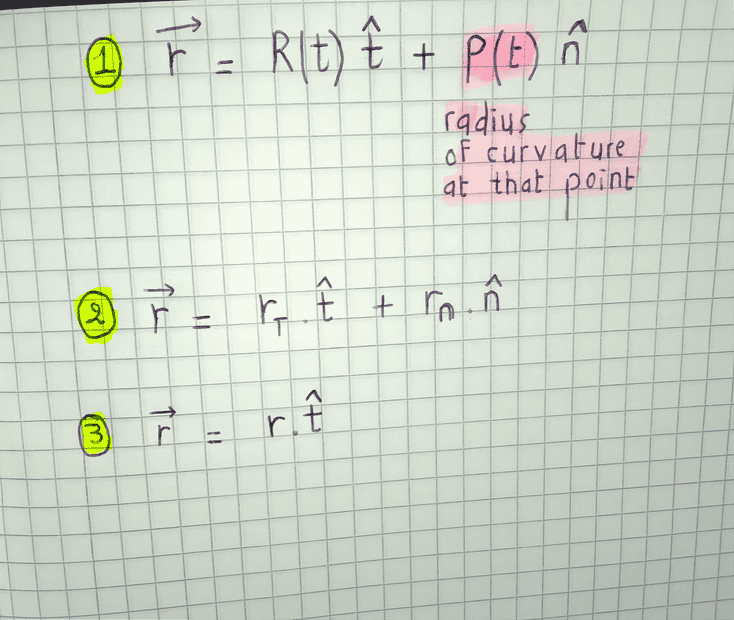 1 r⃗ = R(t) t̂ + P(t) n̂
radius
of curvature
at that point
2 r⃗ = r_T . t̂ + r_n . n̂
3 r⃗ = r . t̂